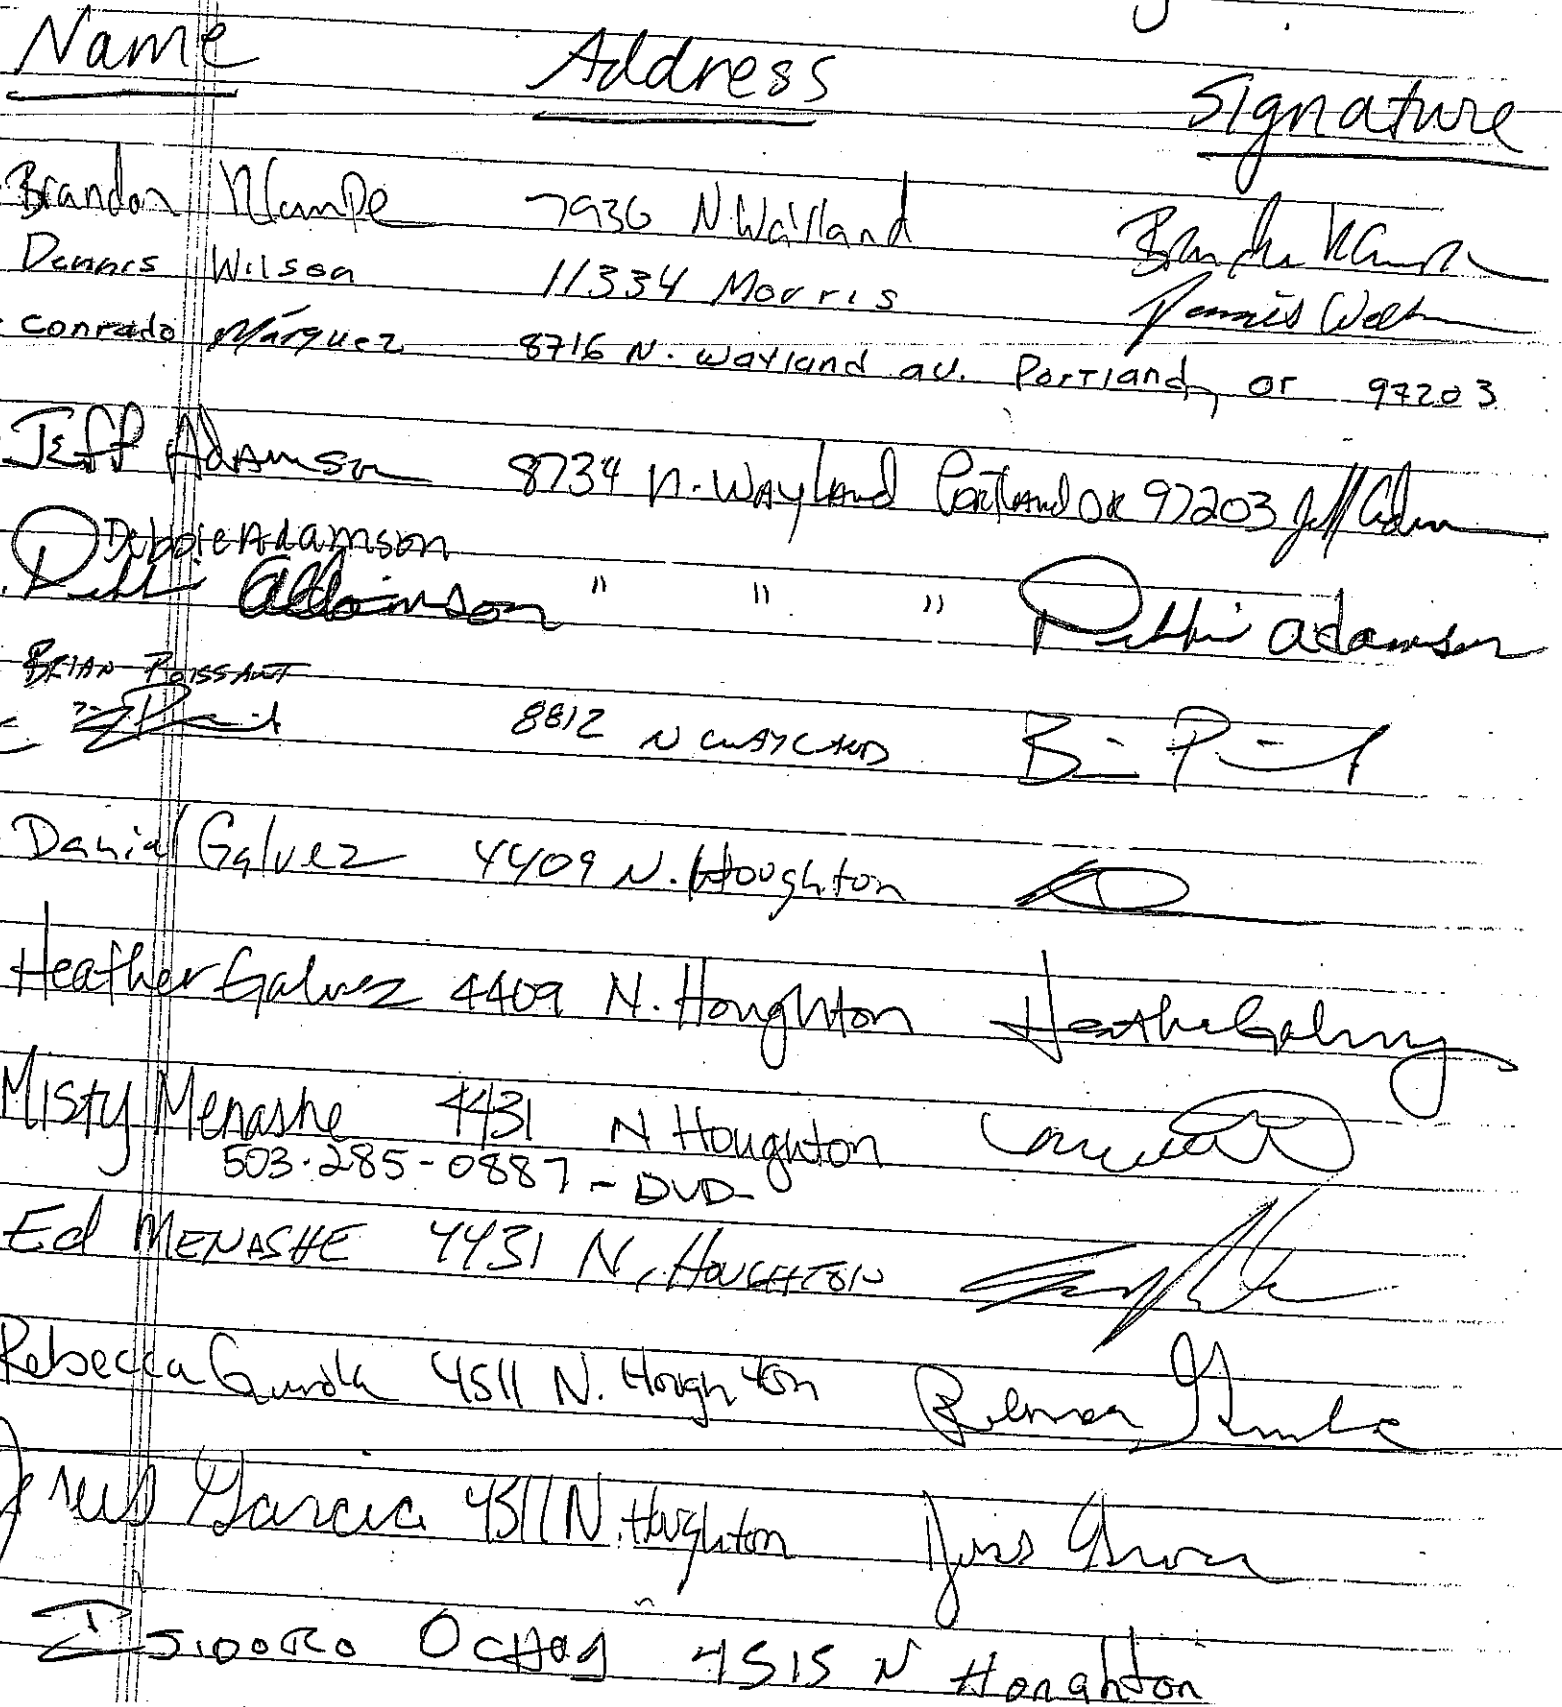 Name Address Signature
Brandon Klampe 7936 N Wayland
Dennis Wilson 11334 Morris
Conrado Márquez 8716 N. Wayland av. Portland, or 97203
Jeff Adamson 8734 N. Wayland Portland OR 97203 Jeff Adamson
Debbie Adamson
Debbie Adamson " " " Debbie Adamson
BRIAN POISSANT
8812 N WAYLAND
Daniel Galvez 4409 N. Houghton
Heather Galvez 4409 N. Houghton Heather Galvez
Misty Menashe 4431 N Houghton
503-285-0887 - DVD
Ed MENASHE 4431 N. HOUGHTON
Rebecca 4511 N. Houghton Rebecca
Jesus Garcia 4511 N. Houghton Jesus Garcia
ISIDORO OCHOA 4515 N Houghton